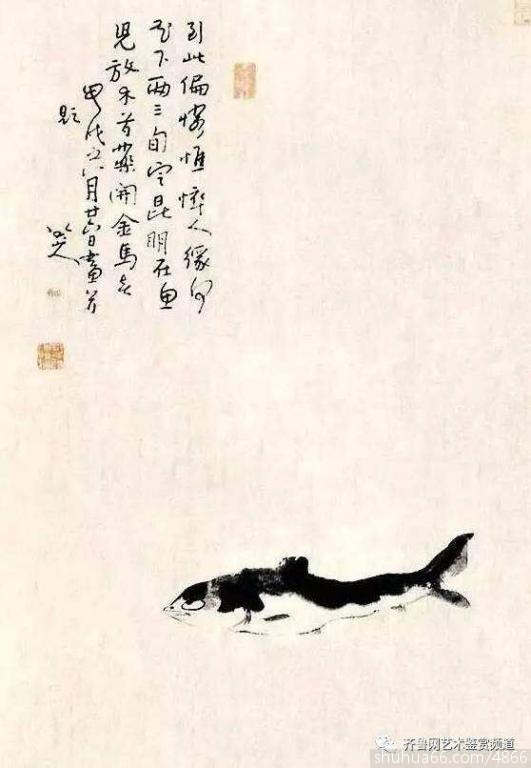 到此偏憐憔悴人緣何
花下兩三旬定昆明在魚
兒放木芍藥開金馬春
甲戌八月廿六日畫并
題
八大山人
齐鲁网艺术鉴赏频道
shuhua66.com/4866